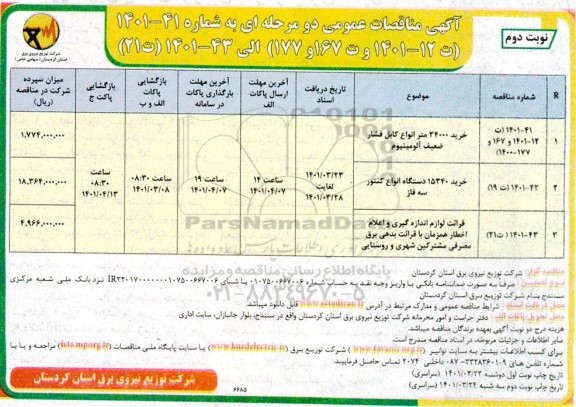 آگهی مناقصات عمومی دو مرحله ای به شماره ۴۱-۱۴۰۱
(ت ۱۲-۱۴۰۱ و ت ۱۶۷و ۱۷۷) الی ۴۳-۱۴۰۱ (ت۲۱)
نوبت دوم
شرکت توزیع نیروی برق
استان کردستان ( سهامی خاص )
R
شماره مناقصه
موضوع
تاریخ دریافت اسناد
آخرین مهلت ارسال پاکات الف
آخرین مهلت بارگذاری پاکات در سامانه
بازگشایی پاکات الف و ب
بازگشایی پاکت ج
میزان سپرده شرکت در مناقصه (ریال)
۱
۴۱-۱۴۰۱ (ت ۱۲-۱۴۰۱ و ۱۶۷ و ۱۷۷-۱۴۰۰)
خرید ۳۴۰۰۰ متر انواع کابل فشار ضعیف آلومینیوم
۱,۷۷۴,۰۰۰,۰۰۰
۲
۴۲-۱۴۰۱ (ت ۱۹)
خرید ۱۵۳۴۰ دستگاه انواع کنتور سه فاز
۱۸,۳۶۴,۰۰۰,۰۰۰
۳
۴۳-۱۴۰۱ (ت۲۱)
قرائت لوازم اندازه گیری و اعلام اخطار همزمان با قرائت بدهی برق مصرفی مشترکین شهری و روستایی
۴,۹۶۶,۰۰۰,۰۰۰
۱۴۰۱/۰۳/۲۳ لغایت ۱۴۰۱/۰۳/۲۸
ساعت ۱۴ ۱۴۰۱/۰۴/۰۷
ساعت ۱۹ ۱۴۰۱/۰۴/۰۷
ساعت ۰۸:۳۰ ۱۴۰۱/۰۳/۰۸
ساعت ۰۸:۳۰ ۱۴۰۱/۰۴/۱۳
ParsNamadData
پایگاه اطلاع رسانی مناقصه و مزایده
۰۲۱-۸۸۳۴۹۶۷۰-۵
مناقصه گزار: شرکت توزیع نیروی برق استان کردستان
صرفاً به صورت ضمانتنامه بانکی یا واریز وجه نقد به حساب شماره ۰۱۰۷۵۰۰۶۶۷۰۰۶ با شبای IR۲۲۰۱۷۰۰۰۰۰۰۰۱۰۷۵۰۰۶۶۷۰۰۶ نزد بانک ملی شعبه مرکزی
سنندج بنام شرکت توزیع برق استان کردستان
شرایط مناقصه عمومی و مدارک مرتبط در آدرس www.setadiran.ir قابل دانلود میباشد.
محل تحویل پاکات الف: دفتر حراست و امور محرمانه شرکت توزیع نیروی برق استان کردستان واقع در سنندج، بلوار جانبازان، سایت اداری
هزینه درج دو نوبت آگهی بعهده برندگان مناقصه میباشد.
سایر اطلاعات و جزئیات مربوطه، در اسناد مناقصه مندرج است.
برای کسب اطلاعات بیشتر به سایت توانیر (www.tavanir.org.ir) شرکت توزیع برق (www.kurdelectric.ir) و یا سایت پایگاه ملی مناقصات (iets.mporg.ir) مراجعه و یا با
شماره تلفن های ۹-۳۳۲۸۳۶۰۱-۰۸۷ داخلی ۲۰۷۴ تماس حاصل فرمایید.
تاریخ چاپ نوبت اول دوشنبه ۱۴۰۱/۰۳/۲۳ (سراسری)
تاریخ چاپ نوبت دوم سه شنبه ۱۴۰۱/۰۳/۲۴ (سراسری)
۶۶۸۵
شرکت توزیع نیروی برق استان کردستان